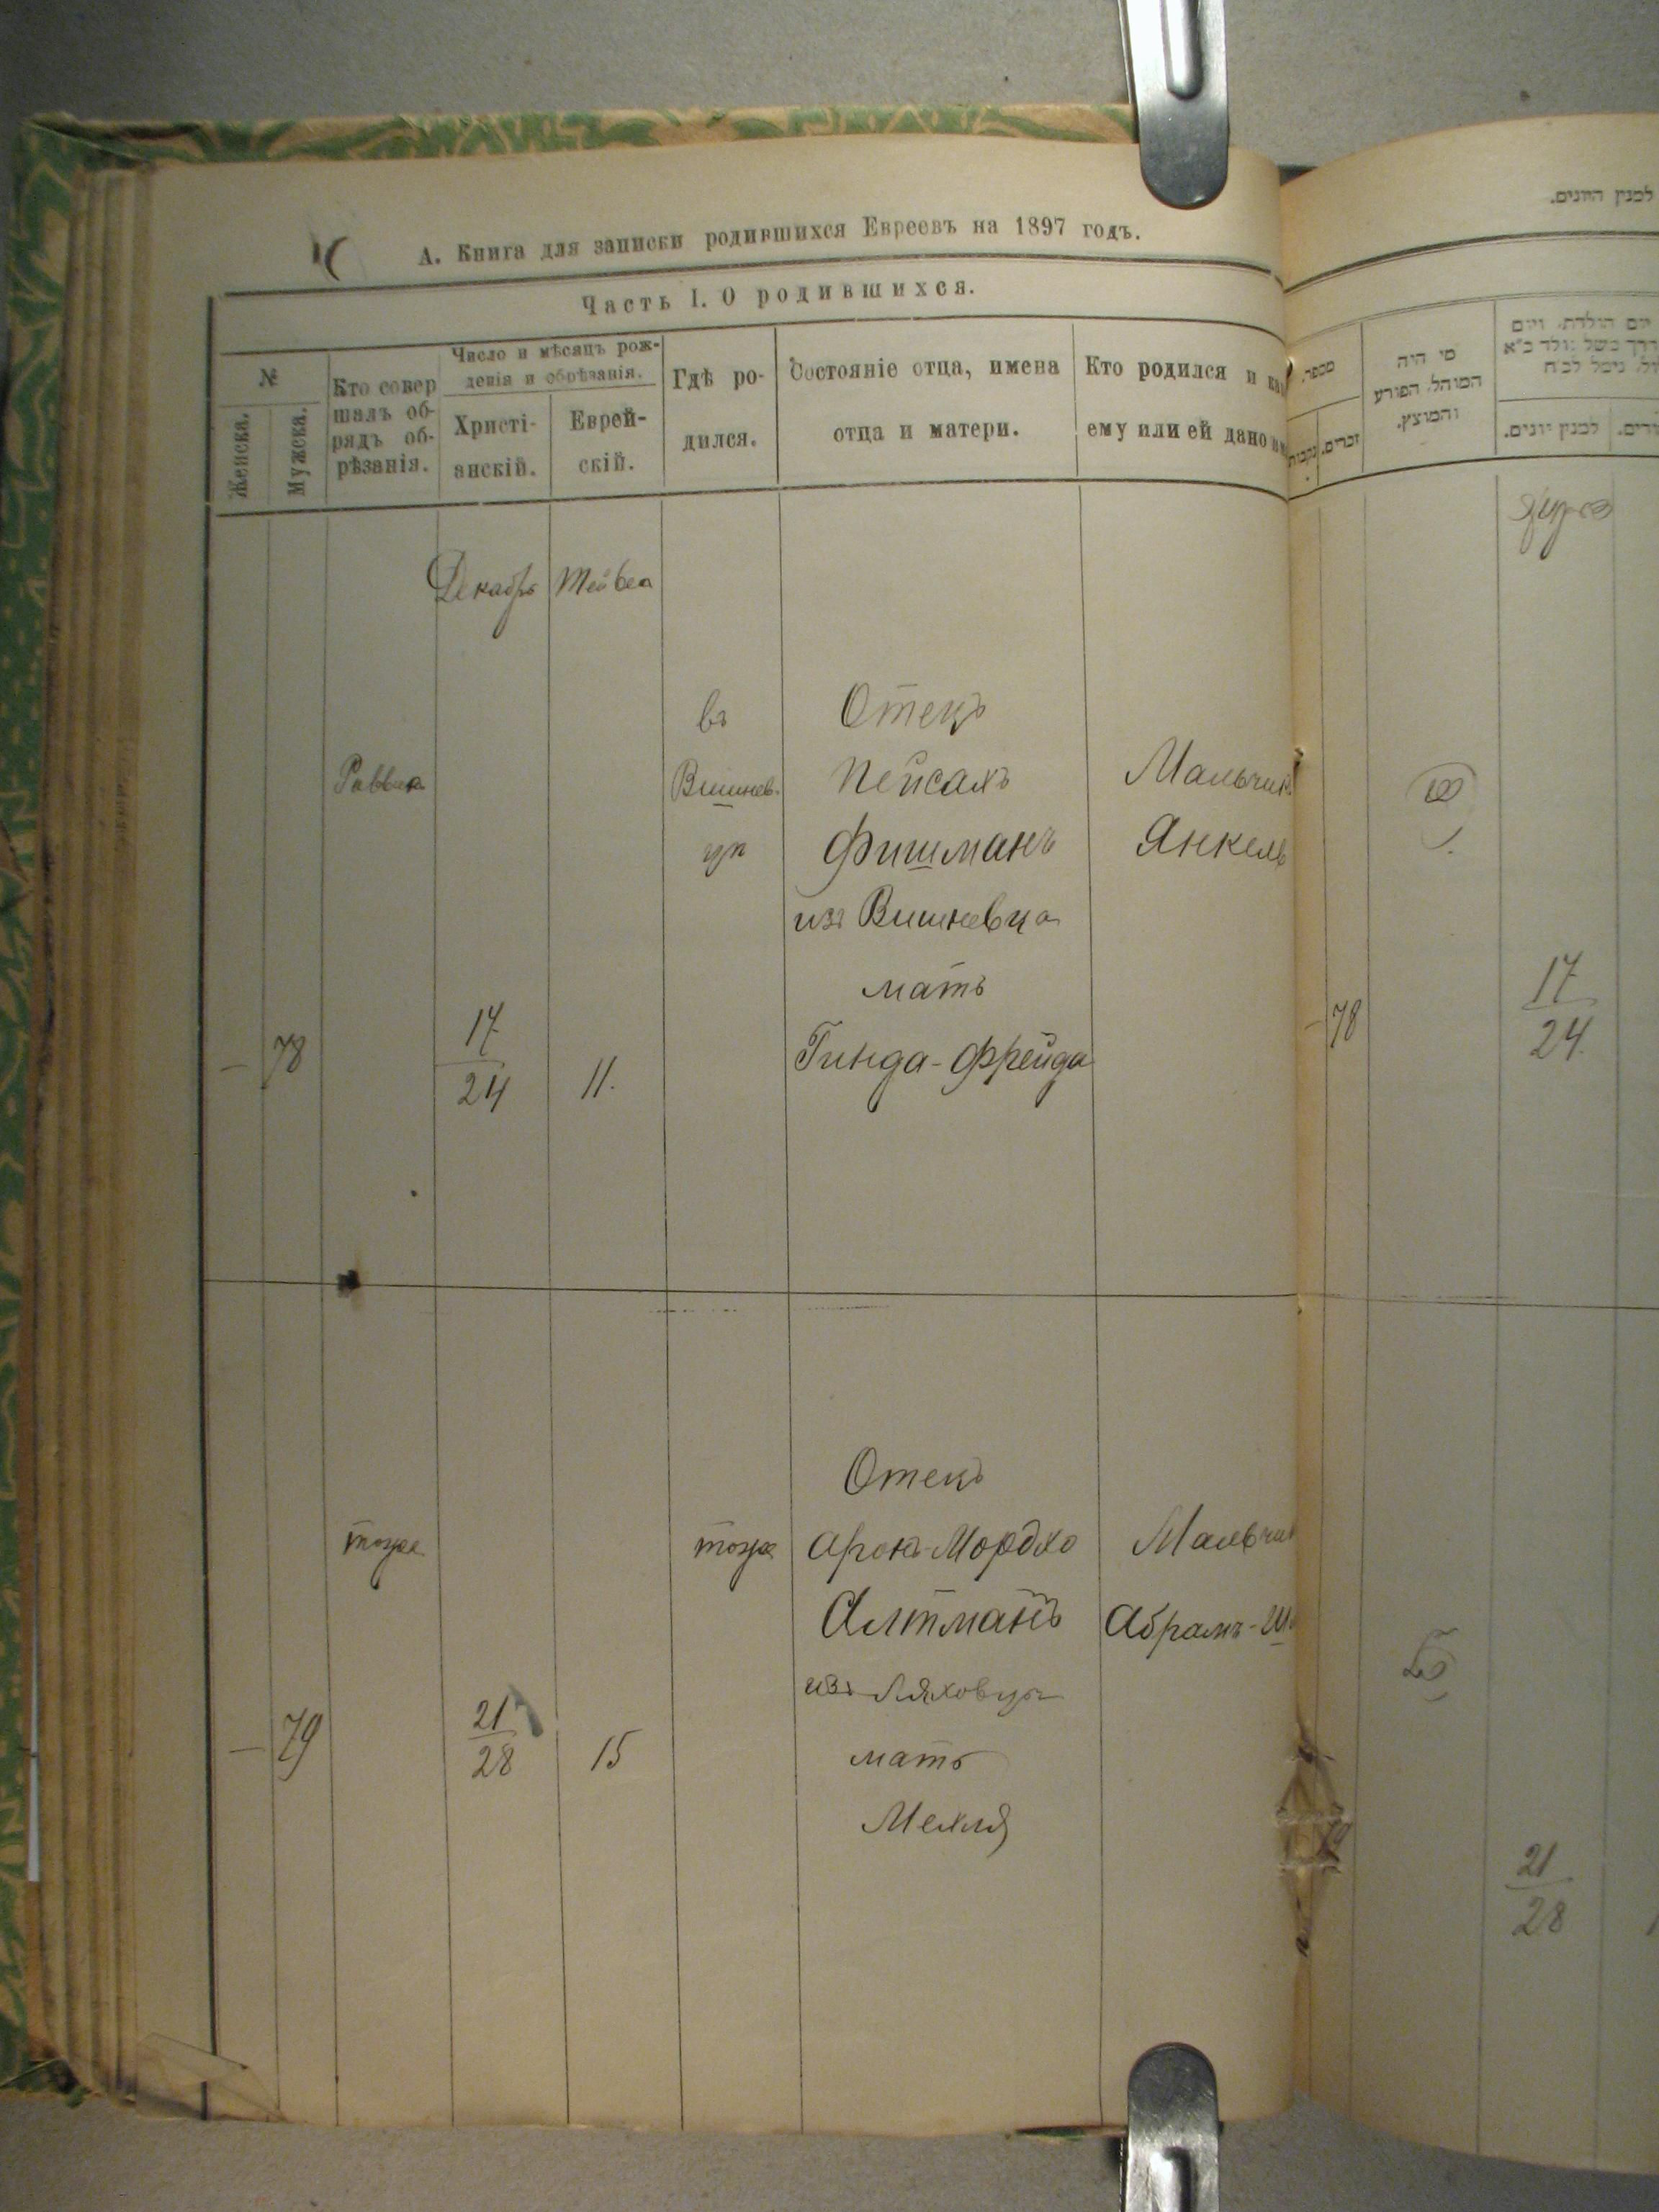 А. Книга для записки родившихся Евреевъ на 1897 годъ.
Часть I. О родившихся.
№
Женска.
Мужска.
Кто совер
шалъ об-
рядъ об-
рѣзанія.
Число и мѣсяцъ рож-
денія и обрѣзанія.
Христі-
анскій.
Еврей-
скій.
Гдѣ ро-
дился.
Состояніе отца, имена
отца и матери.
Кто родился и
ему или ей дано
Декабрь
—
78
Раввин
17
24
11.
въ
Вишнев-
цѣ
Отецъ
Пейсахъ
Фишманъ
изъ Вишневца
мать
Гинда-Фрейда
Мальчикъ
Янкель
—
79
тоже
21
28
15
тоже
Отецъ
Аронъ-Мордко
Алтманъ
изъ Ляховцы
мать
Мехля
Абрамъ-
לכנין היונים.
מספר.
נקבות
זכרים.
מי היה
המוהל, הפורע
והמוצץ.
יום הולדת, ויום
לכנין יונים.
78
17
24.
21
28